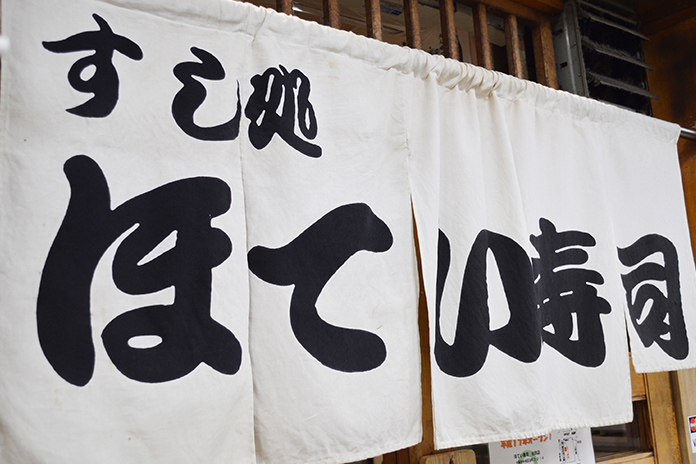 すし処
ほてい寿司